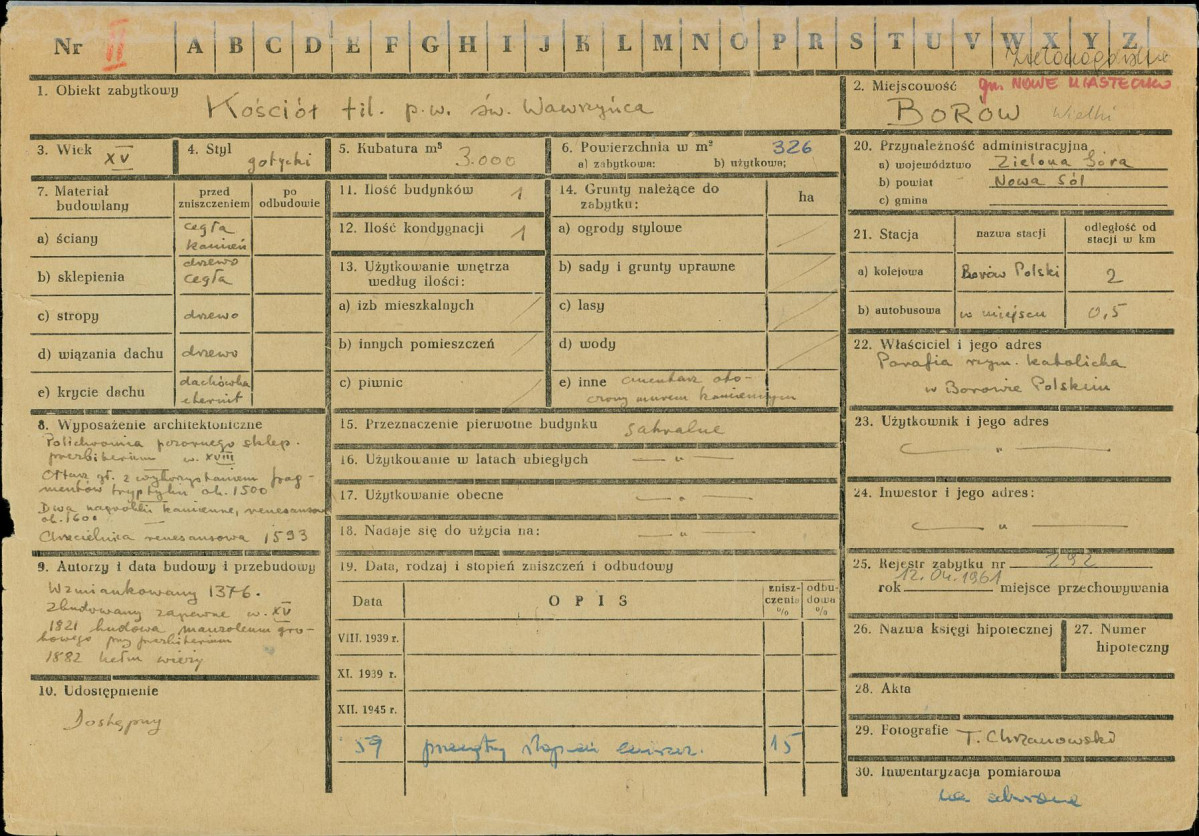 Nr II A B C D E F G H I J K L M N O P R S T U V W X Y Z
Zielonogórskie
1. Obiekt zabytkowy
Kościół fil. p.w. św. Wawrzyńca
2. Miejscowość gm. NOWE MIASTECZKO
BORÓW Wielki
3. Wiek XV
4. Styl gotycki
5. Kubatura m³ 3.000
6. Powierzchnia w m² 326
a) zabytkowa: b) użytkowa:
7. Materiał budowlany
przed zniszczeniem
po odbudowie
a) ściany cegła kamień
b) sklepienia drzewo cegła
c) stropy drzewo
d) wiązania dachu drzewo
e) krycie dachu dachówka eternit
8. Wyposażenie architektoniczne
Polichromia pozornego sklep.
prezbiterium w. XVIII
Ołtarz gł. z wykorzystaniem frag-
mentów tryptyku ok. 1500
Dwa nagrobki kamienne, renesansowe
ok. 1600
Chrzcielnica renesansowa 1593
9. Autorzy i data budowy i przebudowy
Wzmiankowany 1376.
Zbudowany zapewne w. XV
1821 budowa mauzoleum gro-
bowego przy prezbiterium
1882 hełm wieży
10. Udostępnienie
Dostępny
11. Ilość budynków 1
12. Ilość kondygnacji 1
13. Użytkowanie wnętrza
według ilości:
a) izb mieszkalnych
b) innych pomieszczeń
c) piwnic
14. Grunty należące do
zabytku:
ha
a) ogrody stylowe
b) sady i grunty uprawne
c) lasy
d) wody
e) inne cmentarz oto-
czony murem kamiennym
15. Przeznaczenie pierwotne budynku sakralne
16. Użytkowanie w latach ubiegłych — „ —
17. Użytkowanie obecne — „ —
18. Nadaje się do użycia na: — „ —
19. Data, rodzaj i stopień zniszczeń i odbudowy
Data
OPIS
znisz-
czenia
%
odbu-
dowa
%
VIII. 1939 r.
XI. 1939 r.
XII. 1945 r.
59 przeciętny stopień zniszcz. 15
20. Przynależność administracyjna
a) województwo Zielona Góra
b) powiat Nowa Sól
c) gmina
21. Stacja
nazwa stacji
odległość od
stacji w km
a) kolejowa Borów Polski 2
b) autobusowa w miejscu 0,5
22. Właściciel i jego adres
Parafia rzym. katolicka
w Borowie Polskim
23. Użytkownik i jego adres
— „ —
24. Inwestor i jego adres:
— „ —
25. Rejestr zabytku nr 292
rok 12.04.1961 miejsce przechowywania
26. Nazwa księgi hipotecznej
27. Numer
hipoteczny
28. Akta
29. Fotografie T. Chrzanowski
30. Inwentaryzacja pomiarowa